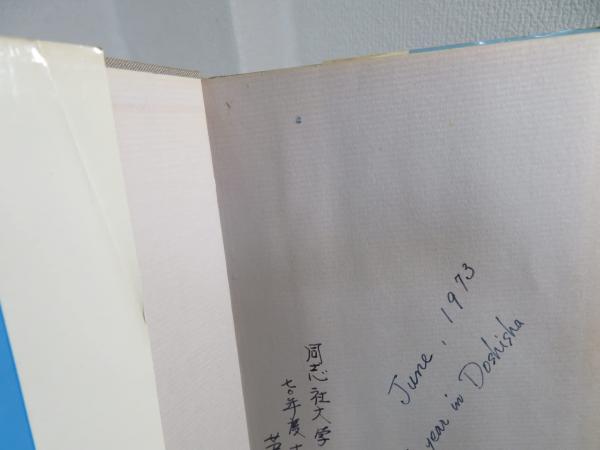 June, 1973
year in Doshisha
同志社大学
七〇年度